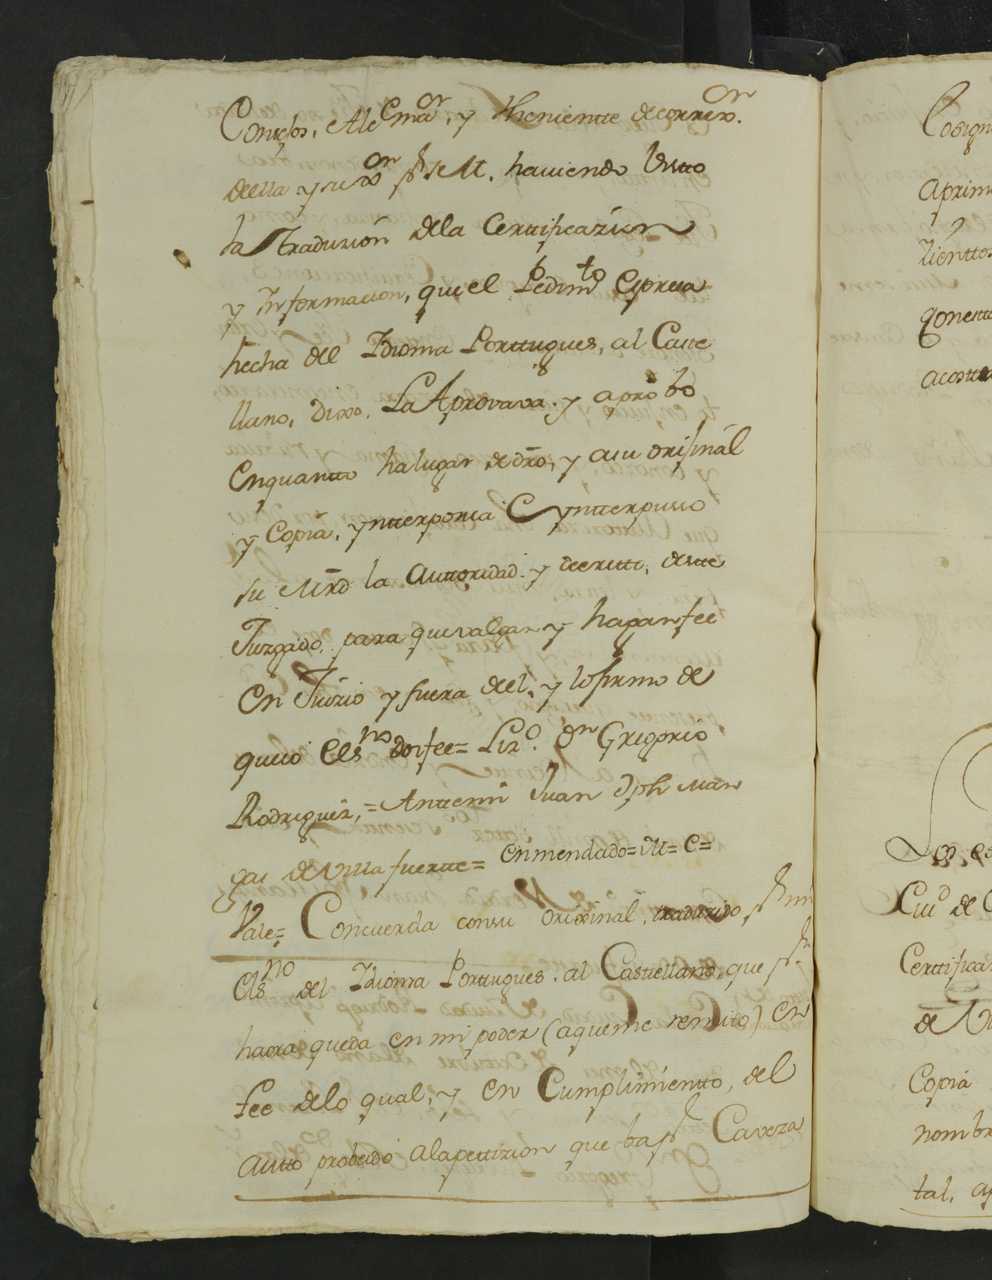 Consejos, Alc.e maor, y Theniente de correxor.
della y su xon pr su M. haviendo Visto
la Traduzion dela Certificazion
y Informacion, que el Pedimto expresa
hecha del Idioma Porttugues, al Caste
llano, Dixo, La Aprovava y aprobo
Enquantto ha lugar de dro, y asu orijinal
y Copia, ynterponia E ynterpusso
su Mrd la Auttoridad y decretto, deste
Juzgado, para que valgan y hagan fee
En Juizio y fuera del, y lo firmo de
que io el Sno Doi fee= Lizdo. Dn Grigorio
Rodriguez,= Anttemi Juan Jph Man
gas de Villa fuertte= Enmendado= M= e=
Vale= Concuerda consu orixinal, traduzido pr mi
el Sno del Idioma Porttugues. al Casttellano, que pr
haora queda en mi poder (aqueme remito) en
fee delo qual, y en Cumplimientto, del
autto probeido ala pettizion que ba pr Caveza
Cosign
aprim
zientto
qonest
acostt
Ciud de C
Certtifica
Copia
nombr
tal, ap